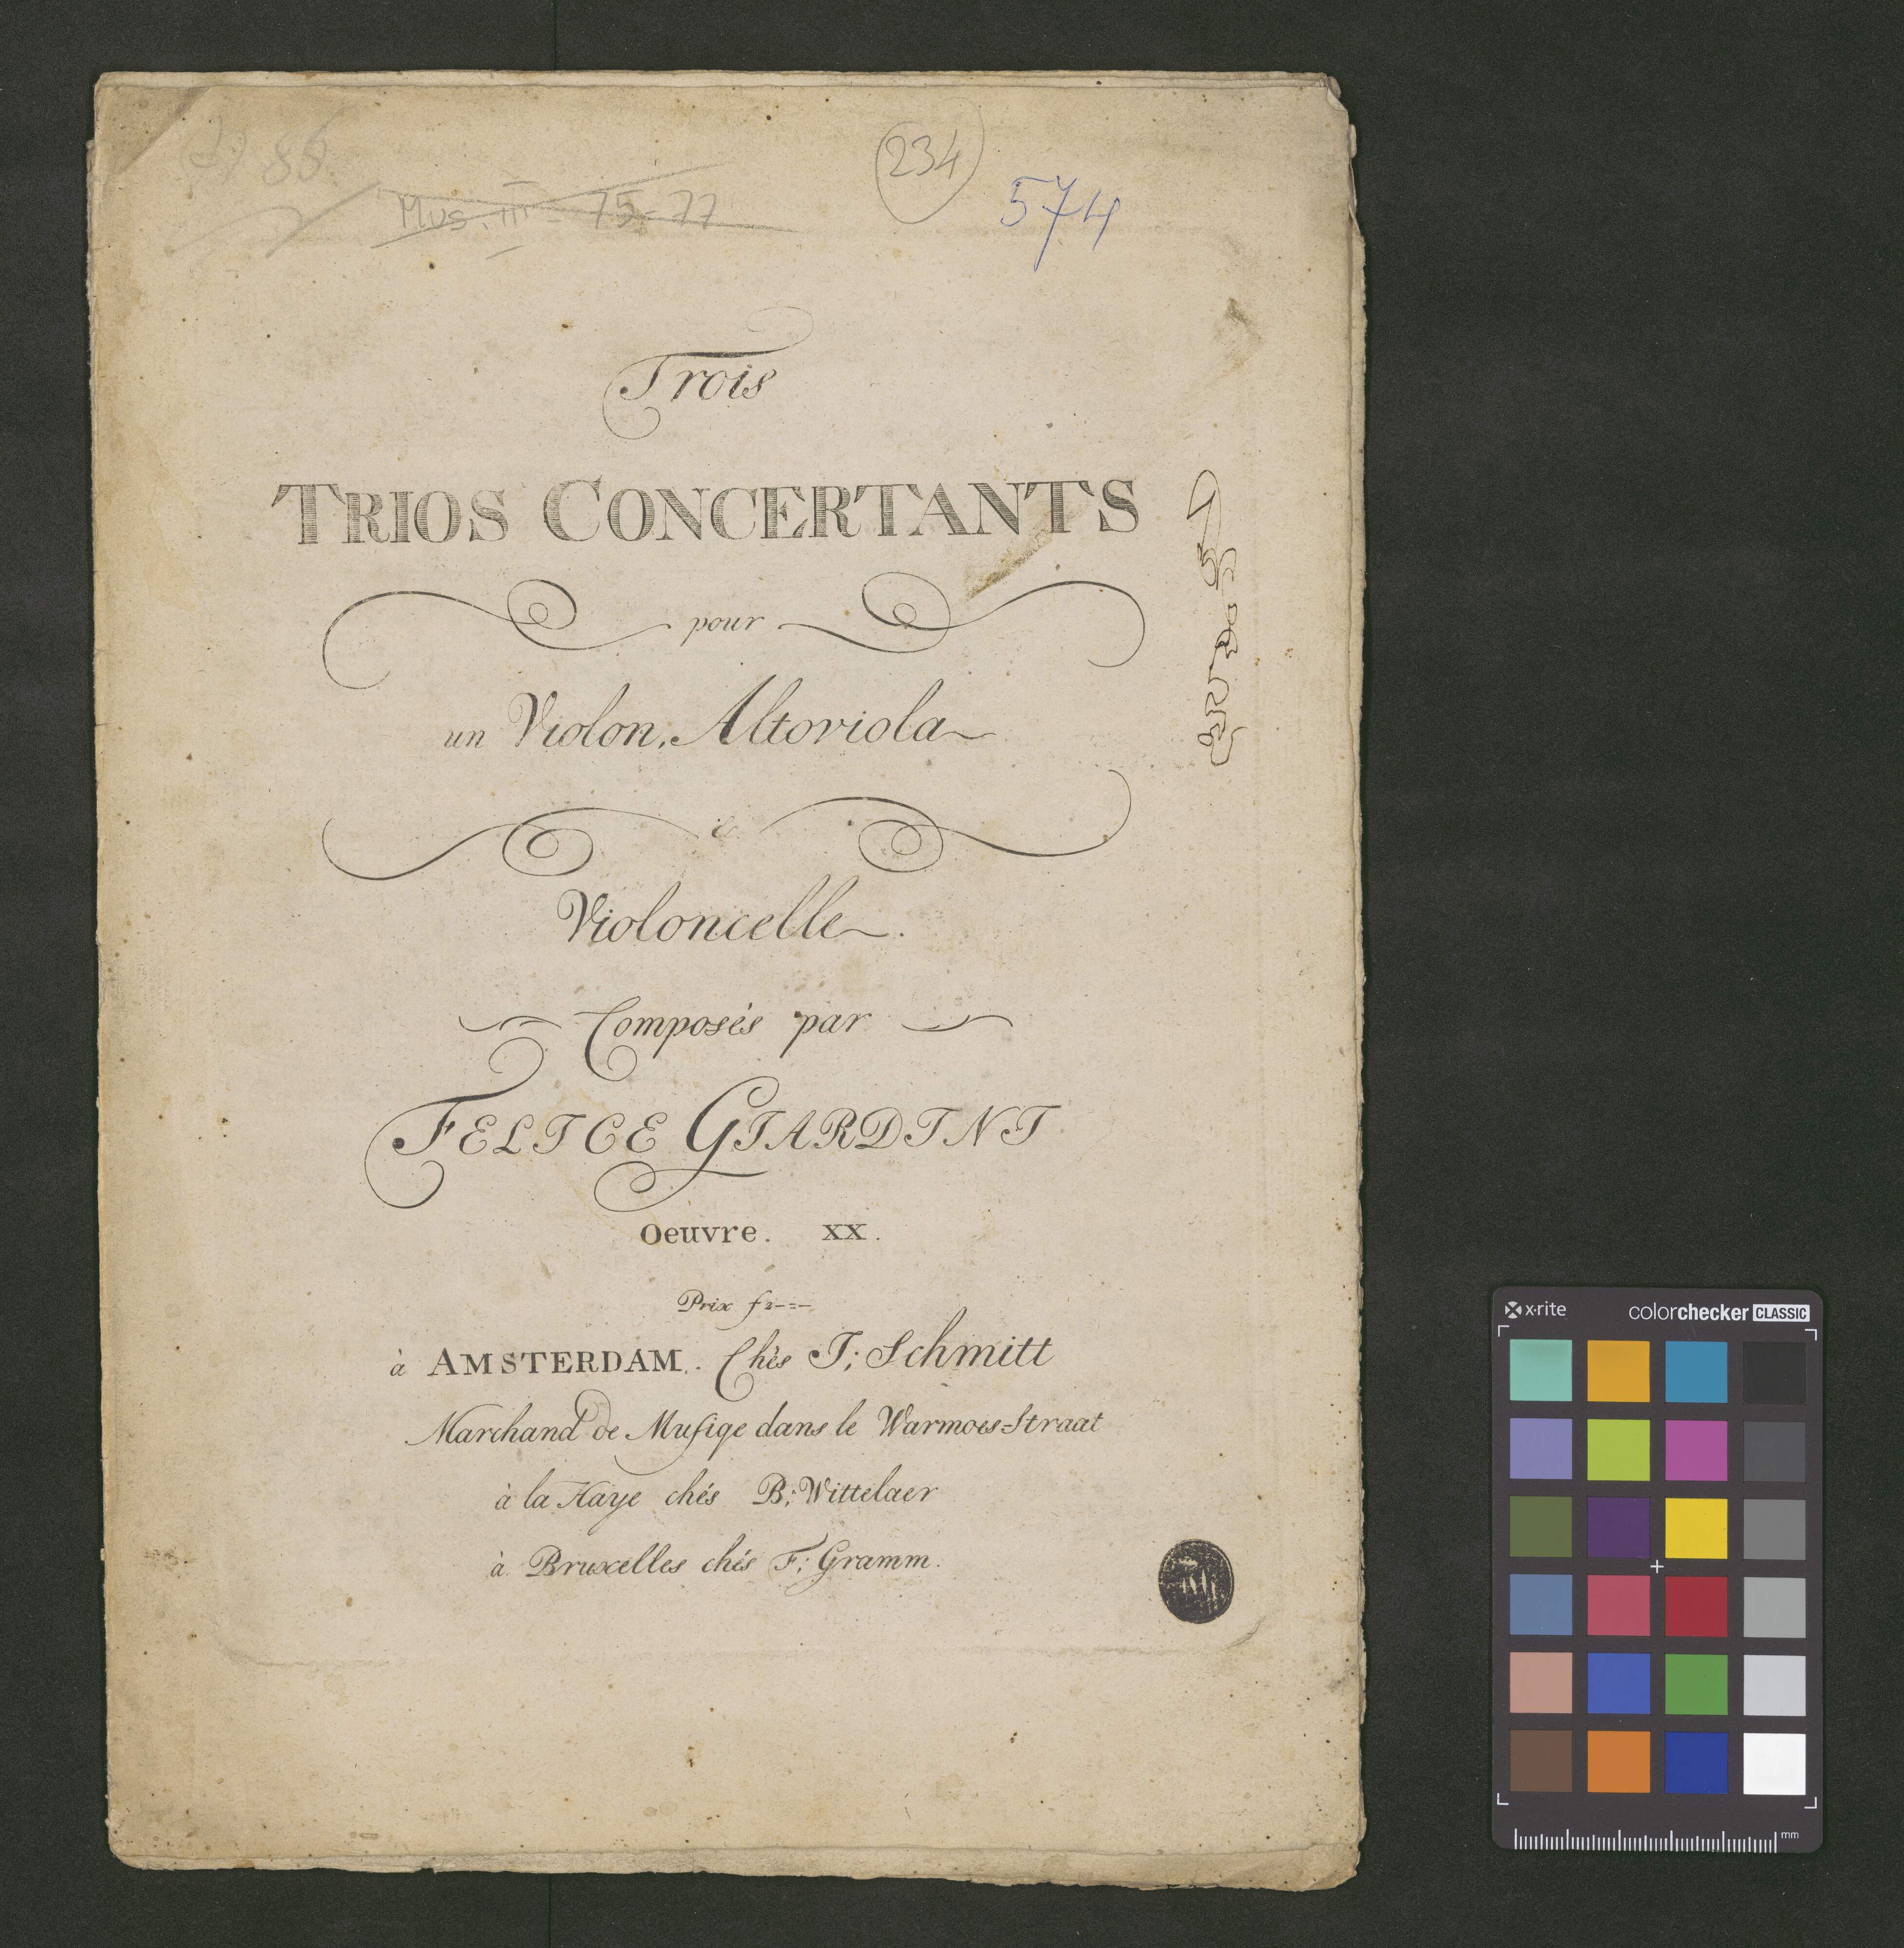 88
Mus. III - 75-77
234
574
Trois
TRIOS CONCERTANTS
pour
un Violon, Altoviola
&
Violoncelle.
Composés par
FELICE GIARDINI
Oeuvre. XX.
Prix f 2-=-
à AMSTERDAM. Chés J; Schmitt
Marchand de Musiqe dans le Warmoes-Straat
à la Haye chés B; Wittelaer
à Bruxelles chés F; Gramm.
x-rite
colorchecker CLASSIC
mm